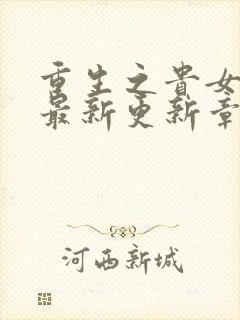 重生之貴女
最新更新章
河西新城